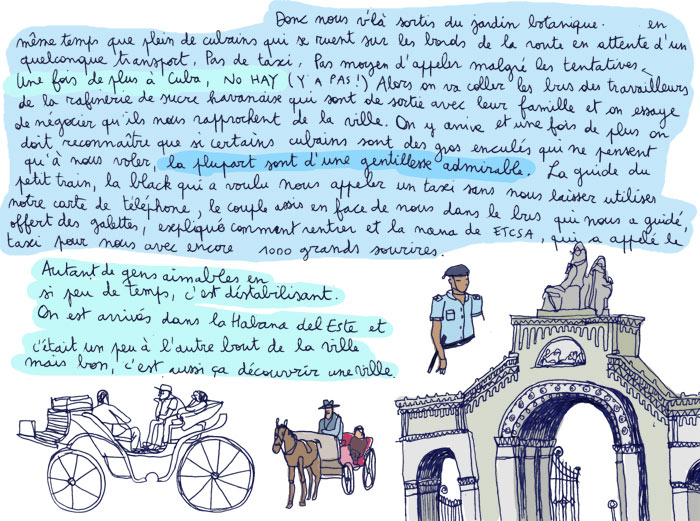 Donc nous v'là sortis du jardin botanique. en
même temps que plein de cubains qui se ruent sur les bords de la route en attente d'un
quelconque transport. Pas de taxi, Pas moyen d'appeler malgré les tentatives.
Une fois de plus à Cuba, NO HAY (Y'A PAS!) Alors on va coller les bus des travailleurs
de la rafinerie de sucre havanaise qui sont de sortie avec leur famille et on essaye
de négocier qu'ils nous rapprochent de la ville. On y arrive et une fois de plus on
doit reconnaître que si certains cubains sont des gros enculés qui ne pensent
qu'à nous voler, la plupart sont d'une gentillesse admirable. La guide du
petit train, la black qui a voulu nous appeler un taxi sans nous laisser utiliser
notre carte de téléphone, le couple assis en face de nous dans le bus qui nous a guidé,
offert des galettes, expliqué comment rentrer et la nana de ETCSA, qui a appelé le
taxi pour nous avec encore 1000 grands sourires.
Autant de gens aimables en
si peu de temps, c'est déstabilisant.
On est arrivés dans la Habana del Este et
c'était un peu à l'autre bout de la ville
mais bon, c'est aussi ça découvrir une ville.